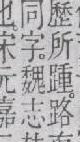 歷所踵路
同字魏志
也宋元嘉